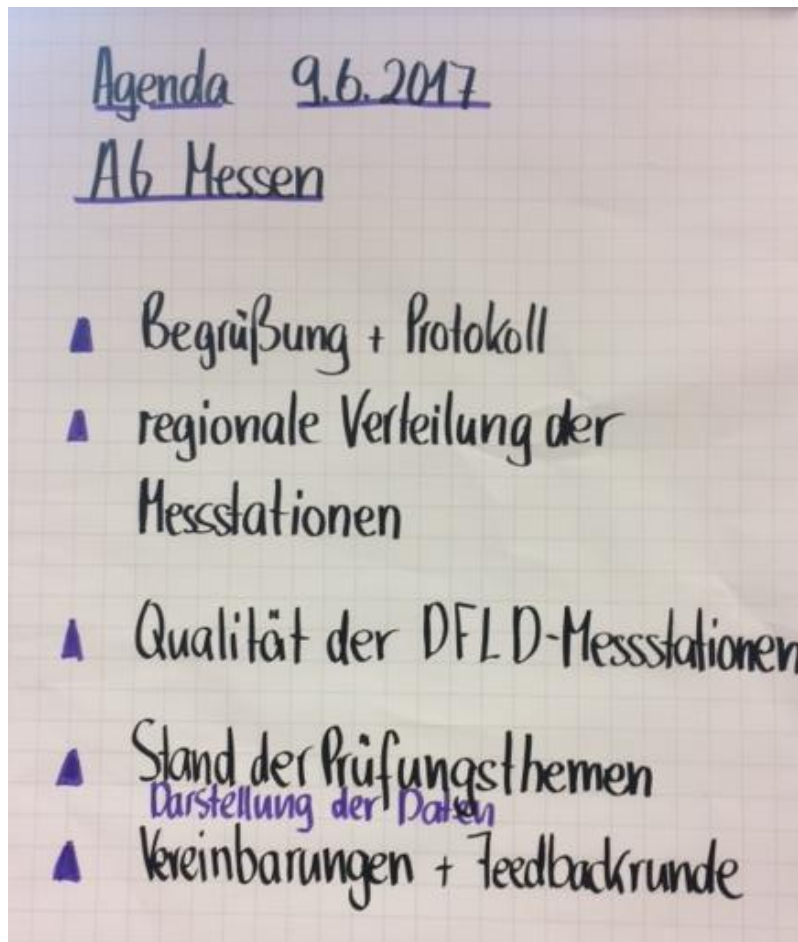 Agenda 9.6.2017
A6 Messen
Begrüßung + Protokoll
regionale Verteilung der
Messstationen
Qualität der DFLD-Messstationen
Stand der Prüfungsthemen
Darstellung der Daten
Vereinbarungen + Feedbackrunde